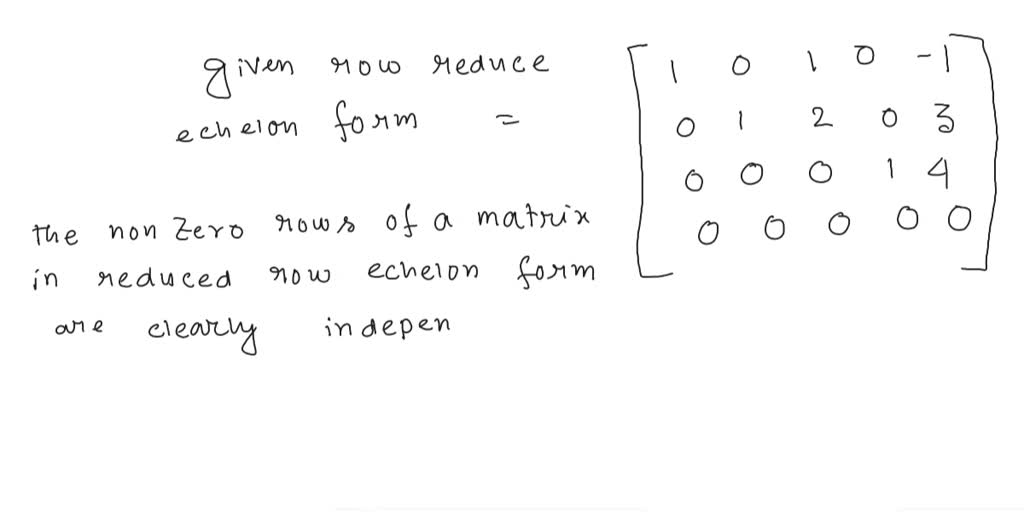 given row reduce
echelon form =
1 0 1 0 -1
0 1 2 0 3
0 0 0 1 4
0 0 0 0 0
the non zero rows of a matrix
in reduced row echelon form
are clearly indepen